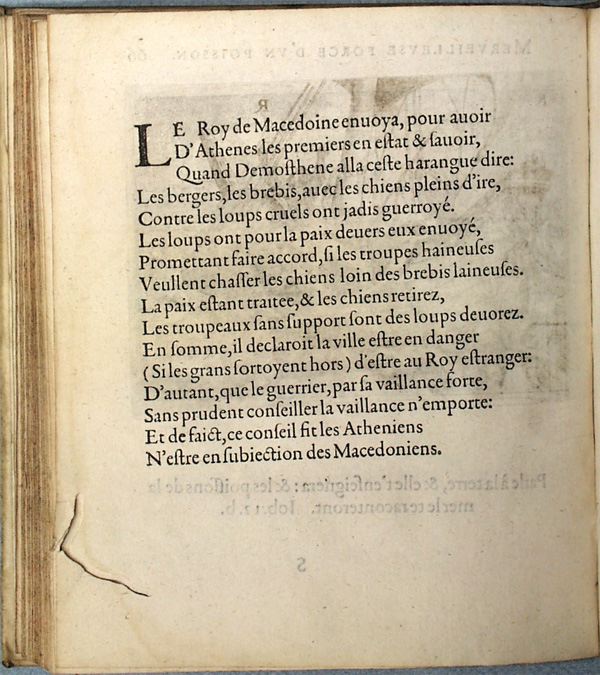 LE Roy de Macedoine enuoya, pour auoir
D'Athenes les premiers en estat & sauoir,
Quand Demosthene alla ceste harangue dire:
Les bergers, les brebis, auec les chiens pleins d'ire,
Contre les loups cruels ont jadis guerroyé.
Les loups ont pour la paix deuers eux enuoyé,
Promettant faire accord, si les troupes haineuses
Veullent chasser les chiens loin des brebis laineuses.
La paix estant traitee, & les chiens retirez,
Les troupeaux sans support sont des loups deuorez.
En somme, il declaroit la ville estre en danger
(Si les grans sortoyent hors) d'estre au Roy estranger:
D'autant, que le guerrier, par sa vaillance forte,
Sans prudent conseiller la vaillance n'emporte:
Et de faict, ce conseil fit les Atheniens
N'estre en subiection des Macedoniens.